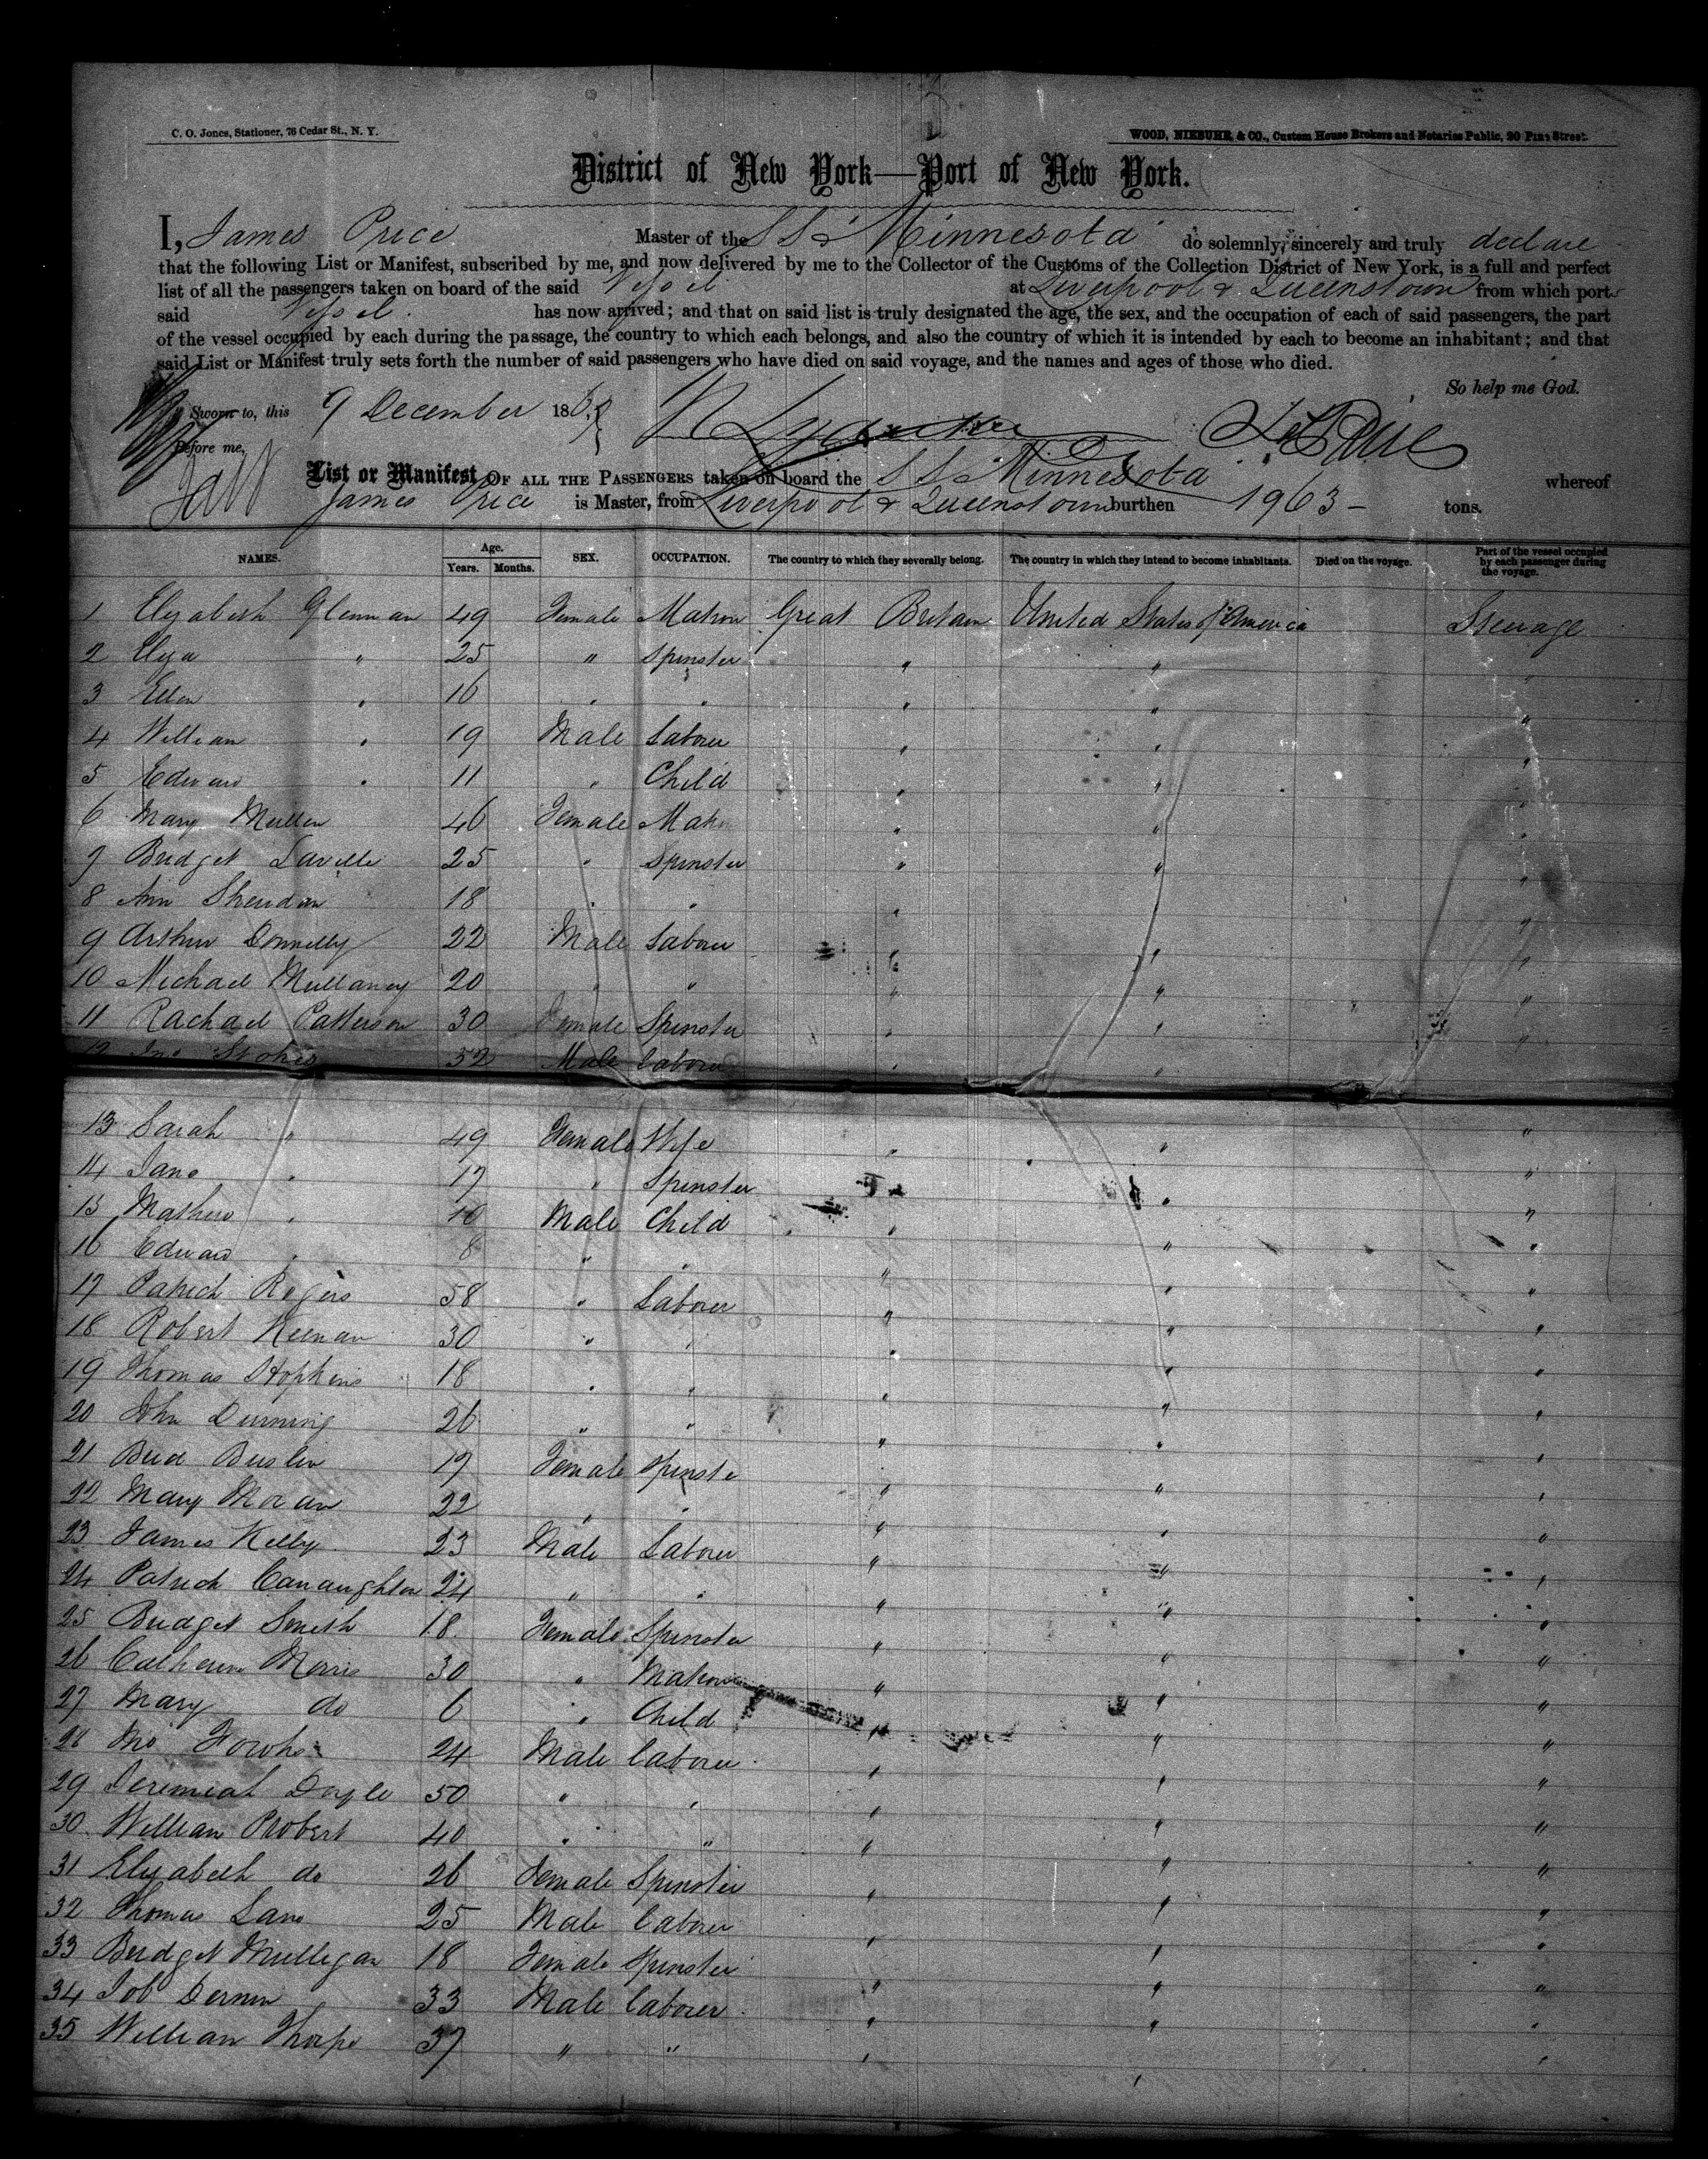 C. O. Jones, Stationer, 76 Cedar St., N. Y.
WOOD, NIEBUHR, & CO., Custom House Brokers and Notaries Public, 20 Pine Street.
District of New York—Port of New York.
I, James Price Master of the SS Minnesota do solemnly, sincerely and truly declare
that the following List or Manifest, subscribed by me, and now delivered by me to the Collector of the Customs of the Collection District of New York, is a full and perfect
list of all the passengers taken on board of the said Vessel at Liverpool & Queenstown from which port
said Vessel has now arrived; and that on said list is truly designated the age, the sex, and the occupation of each of said passengers, the part
of the vessel occupied by each during the passage, the country to which each belongs, and also the country of which it is intended by each to become an inhabitant; and that
said List or Manifest truly sets forth the number of said passengers who have died on said voyage, and the names and ages of those who died.
So help me God.
Sworn to, this 9 December 18
Before me,
List or Manifest OF ALL THE PASSENGERS taken on board the SS Minnesota whereof
James Price is Master, from Liverpool & Queenstown burthen 1963 - tons.
NAMES. Age. Years. Months. SEX. OCCUPATION. The country to which they severally belong. The country in which they intend to become inhabitants. Died on the voyage. Part of the vessel occupied by each passenger during the voyage.
1 Elizabeth Glennan 49 Female Matron Great Britain United States of America Steerage
2 Eliza " 25 " Spinster " " "
3 Ellen " 16 " " " " "
4 William " 19 Male Laborer " " "
5 Edward " 11 " Child " " "
6 Mary Mullen 46 Female " " "
7 Bridget Lavelle 25 " Spinster " " "
8 Ann Sheridan 18 " " " " "
9 Arthur Donnelly 22 Male Laborer " " "
10 Michael Mullaney 20 " " " " "
11 Rachael Patterson 30 Female Spinster " " "
12 Jno Stokes 52 Male laborer " "
13 Sarah " 49 Female Wife " " "
14 Jane " 17 " Spinster " " "
15 Mathew " 10 Male Child " " "
16 Edward " 8 " " " " "
17 Patrick Rogers 58 " Laborer " " "
18 Robert Keenan 30 " " " " "
19 Thomas Hopkins 18 " " " " "
20 John Durning 26 " " " " "
21 Brid Breslin 17 Female Spinste " " "
22 Mary Moran 22 " " " " "
23 James Kelly 23 Male Laborer " " "
24 Patrick Canaughton 24 " " " " "
25 Bridget Smith 18 Female Spinster " " "
26 Catherine Morris 30 " Matron " " "
27 Mary do 6 " Child " " "
28 Jno 24 Male laborer " " "
29 Jeremiah Doyle 50 " " " " "
30 William Probert 40 " " " " "
31 Elizabeth do 26 Female Spinster " " "
32 Thomas Lane 25 Male laborer " " "
33 Bridget Mulligan 18 Female Spinster " " "
34 Job 33 Male laborer " " "
35 William Thorpe 37 " " " " "